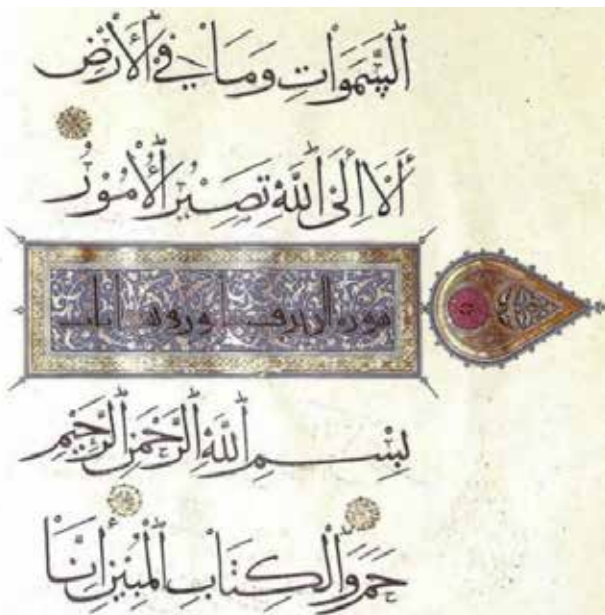 السَّمَوَاتِ وَمَا فِي الْأَرْضِ
أَلَا إِلَى اللَّهِ تَصِيْرُ الْأُمُوْرُ
سورة الزخرف
بِسْمِ اللَّهِ الرَّحْمَنِ الرَّحِيْمِ
حم وَالْكِتَابِ الْمُبِيْنِ إِنَّا